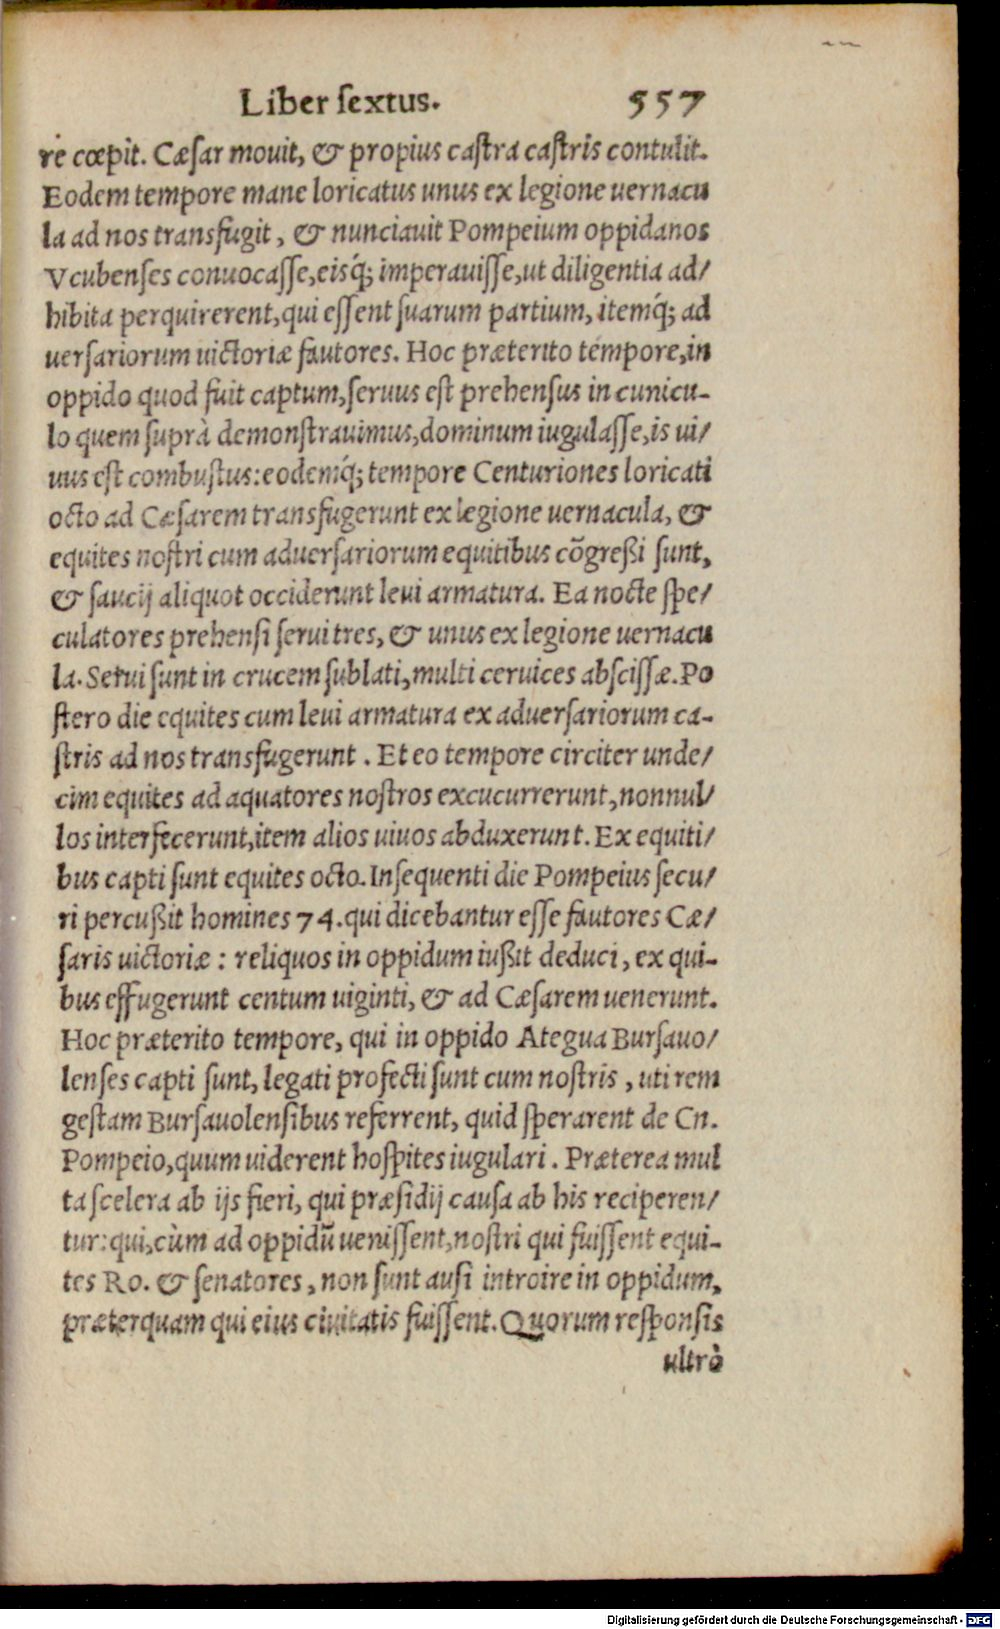 Liber sextus. 557
re cœpit. Cæsar movit, & propius castra castris contulit.
Eodem tempore mane loricatus unus ex legione uernacu
la ad nos transfugit, & nunciavit Pompeium oppidanos
Vcubenses convocasse, eisq́; imperavisse, ut diligentia ad/
hibita perquirerent, qui essent suarum partium, itemq́; ad
versariorum uictoriæ fautores. Hoc præterito tempore, in
oppido quod fuit captum, servus est prehensus in cunicu-
lo quem suprà demonstravimus, dominum iugulasse, is ui/
uus est combustus: eodemq́; tempore Centuriones loricati
octo ad Cæsarem transfugerunt ex legione uernacula, &
equites nostri cum adversariorum equitibus cõgreßi sunt,
& saucij aliquot occiderunt levi armatura. Ea nocte spe/
culatores prehensi servi tres, & unus ex legione uernacu
la. Servi sunt in crucem sublati, multi cervices abscissæ. Po
stero die equites cum levi armatura ex adversariorum ca-
stris ad nos transfugerunt. Et eo tempore circiter unde/
cim equites ad aquatores nostros excucurrerunt, nonnul/
los interfecerunt, item alios uivos abduxerunt. Ex equiti/
bus capti sunt equites octo. Insequenti die Pompeius secu/
ri percußit homines 74. qui dicebantur esse fautores Cæ/
saris uictoriæ: reliquos in oppidum iußit deduci, ex qui-
bus effugerunt centum uiginti, & ad Cæsarem uenerunt.
Hoc præterito tempore, qui in oppido Ategua Bursavo/
lenses capti sunt, legati profecti sunt cum nostris, uti rem
gestam Bursavolensibus referrent, quid sperarent de Cn.
Pompeio, quum uiderent hospites iugulari. Præterea mul
ta scelera ab ijs fieri, qui præsidij causa ab his reciperen/
tur: qui, cùm ad oppidũ uenissent, nostri qui fuissent equi-
tes Ro. & senatores, non sunt ausi introire in oppidum,
præterquam qui eius civitatis fuissent. Quorum responsis
ultrò
Digitalisierung gefördert durch die Deutsche Forschungsgemeinschaft - DFG